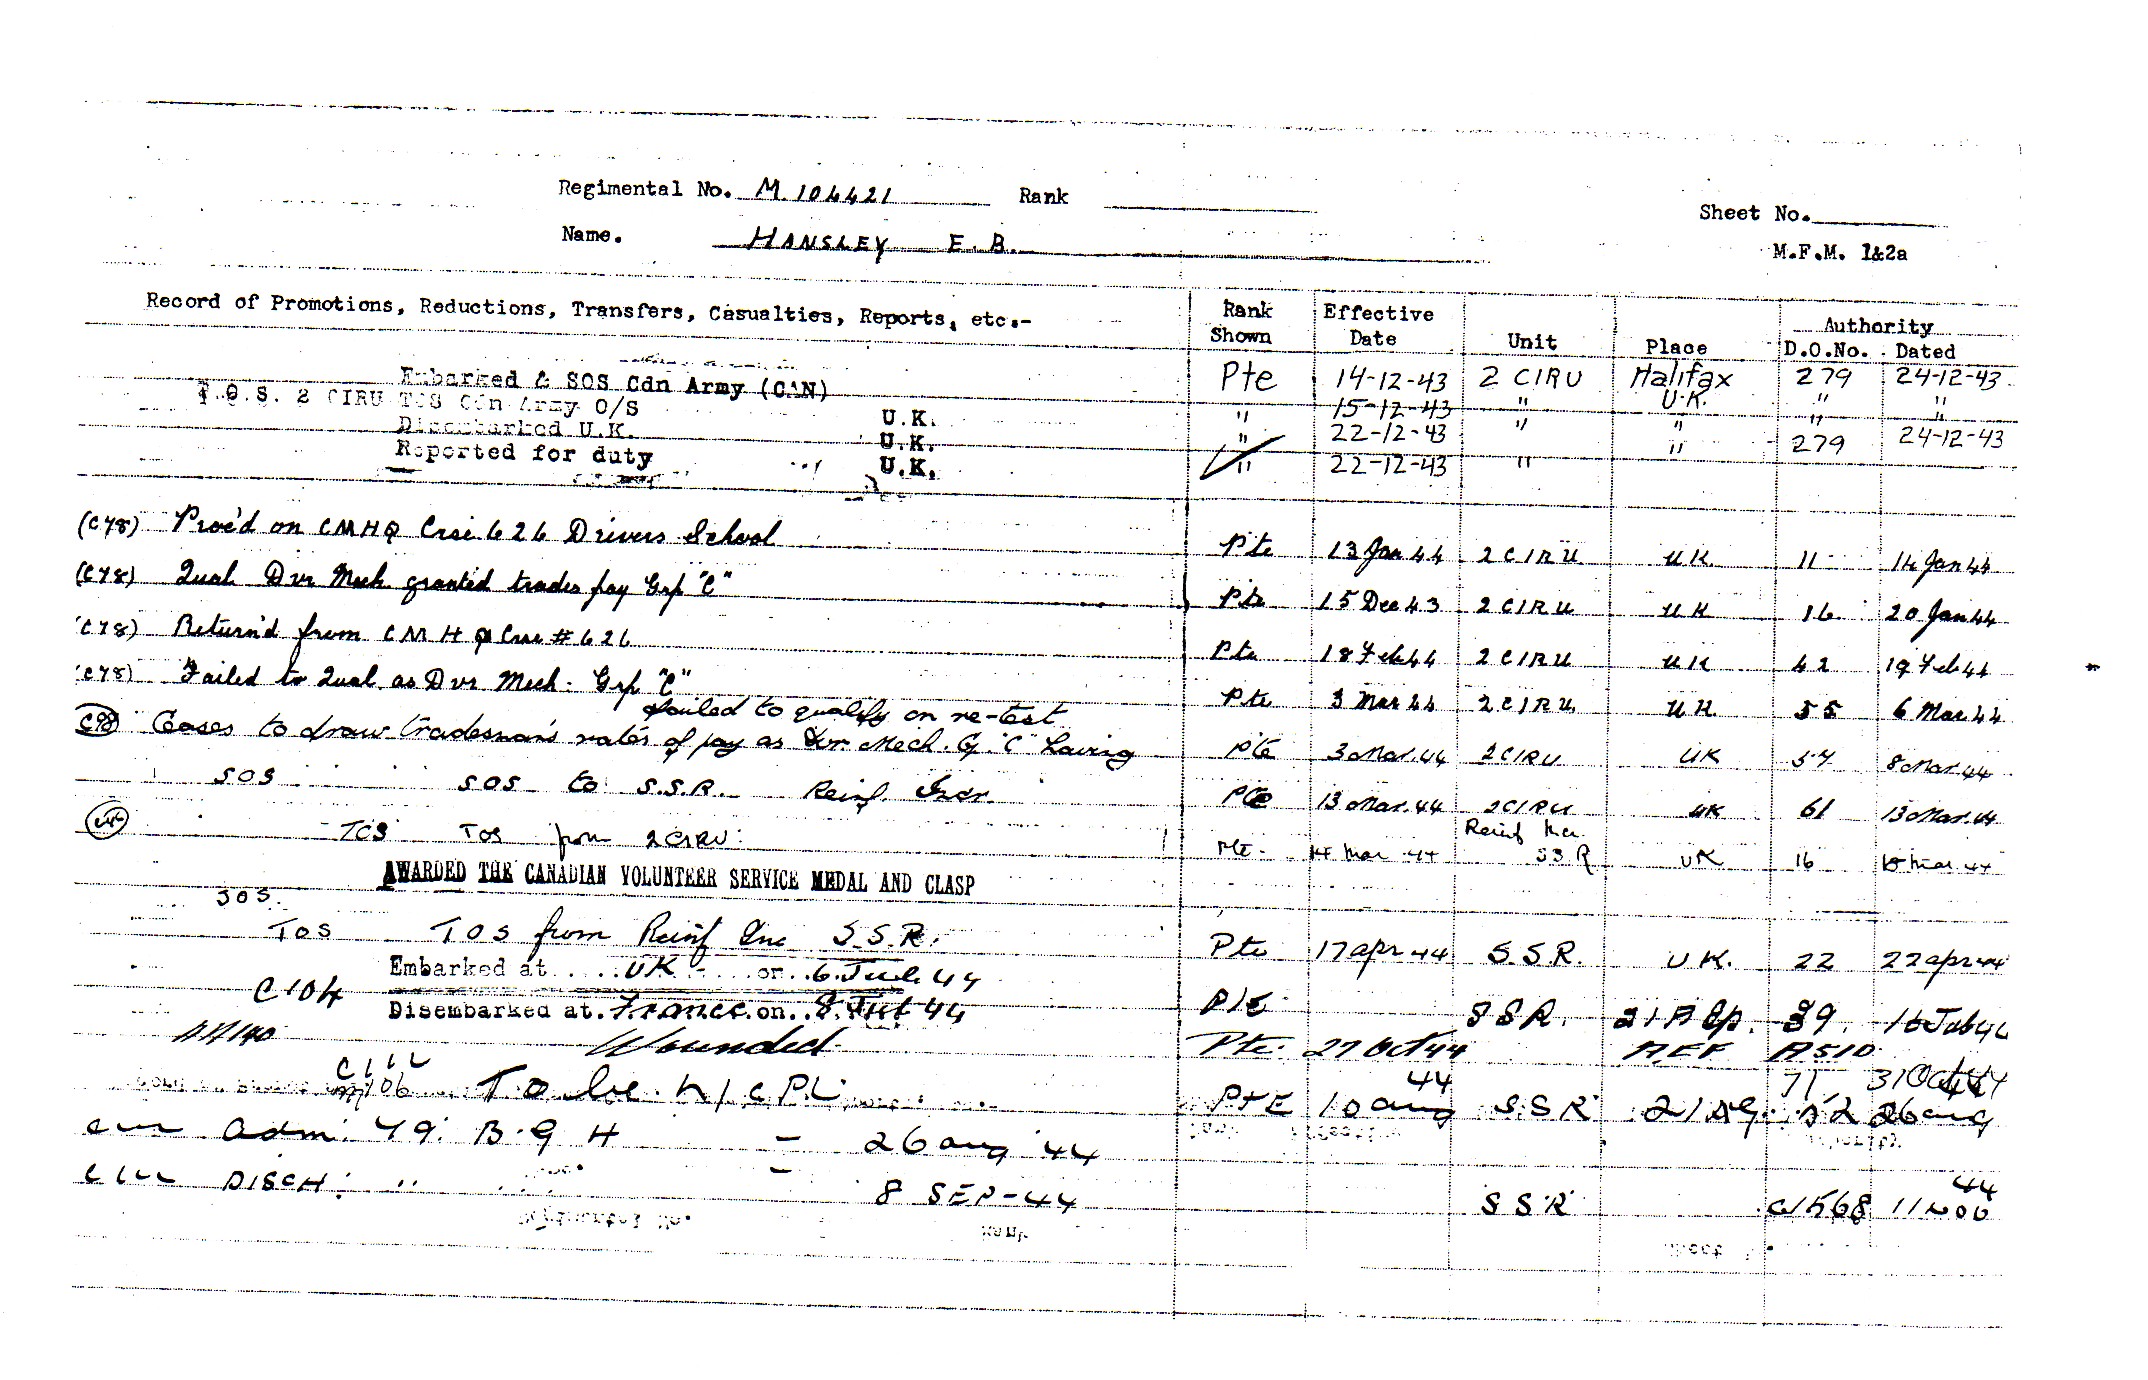 Regimental No. M 104421 Rank
Sheet No.
Name. HANSLEY E. B.
M.F.M. 1&2a
Record of Promotions, Reductions, Transfers, Casualties, Reports, etc.- Rank Shown Effective Date Unit Place Authority D.O.No. Dated
Embarked & SOS Cdn Army (CAN) Pte 14-12-43 2 CIRU Halifax 279 24-12-43
T.O.S. 2 CIRU TOS Cdn Army O/S U.K. " 15-12-43 " U.K. " "
Disembarked U.K. U.K. " 22-12-43 " " " "
Reported for duty U.K. " 22-12-43 " " 279 24-12-43
(C78) Proc'd on CMHQ Crse 626 Drivers School Pte 13 Jan 44 2 CIRU UK 11 14 Jan 44
(C78) Qual Dvr Mech granted trades pay Grp "C" Pte 15 Dec 43 2 CIRU UK 16 20 Jan 44
(C78) Return'd from CMHQ Crse # 626 Pte 18 Feb 44 2 CIRU UK 42 19 Feb 44
(C78) Failed to Qual as Dvr Mech. Grp "C" Pte 3 Mar 44 2 CIRU UK 55 6 Mar 44
failed to qualify on re-test
C98 Ceases to draw tradesman's rates of pay as Dvr Mech. G "C" having Pte 3 Mar. 44 2 CIRU UK 57 8 Mar 44
SOS SOS to S.S.R. Reinf. Pte 13 Mar. 44 2 CIRU UK 61 13 Mar. 44
TOS TOS from 2 CIRU. Pte. Mar 44 Reinf SSR UK 16 Mar 44
AWARDED THE CANADIAN VOLUNTEER SERVICE MEDAL AND CLASP
SOS
TOS TOS from Reinf Inc S.S.R. Pte 17 apr 44 S.S.R. U.K. 22 22 apr 44
Embarked at UK on 6 Jul 44
C104 Disembarked at France on 8 Jul 44 Pte SSR. 21 A Gp. 39
Wounded Pte. 27 Oct 44 AEF A510
71 31 Oct 44
M106 To be A/CPL Pte 10 aug 44 SSR 21 AG 52 26 aug
Adm. 79 B G H - 26 aug 44
DISCH. " - 8 SEP-44 SSR 11 Nov 44